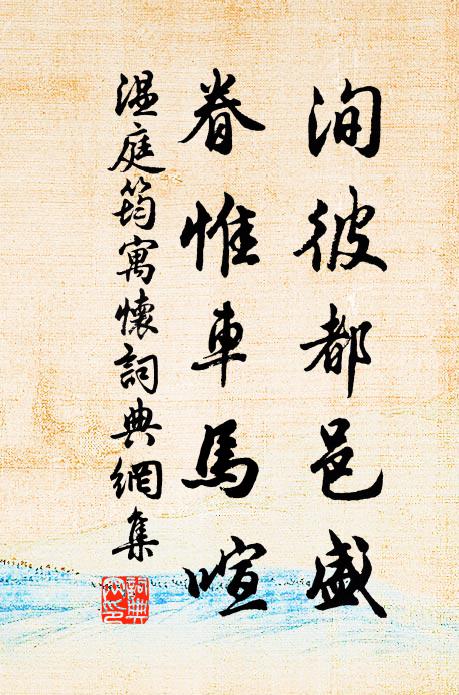 洵彼都邑盛
眷惟車馬喧
溫庭筠寓懷詞典網集